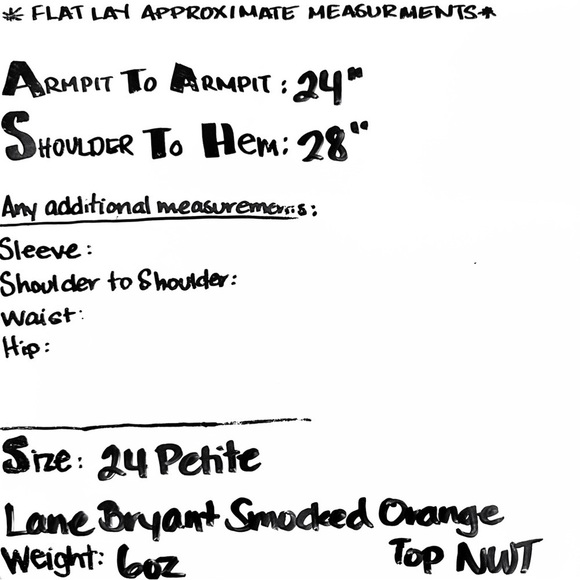 * FLAT LAY APPROXIMATE MEASURMENTS*
ARMPIT TO ARMPIT : 24"
SHOULDER TO HEM: 28"
Any additional measurements:
Sleeve:
Shoulder to Shoulder:
Waist:
Hip:
Size: 24 Petite
Lane Bryant Smocked Orange
Weight: 6oz Top NWT